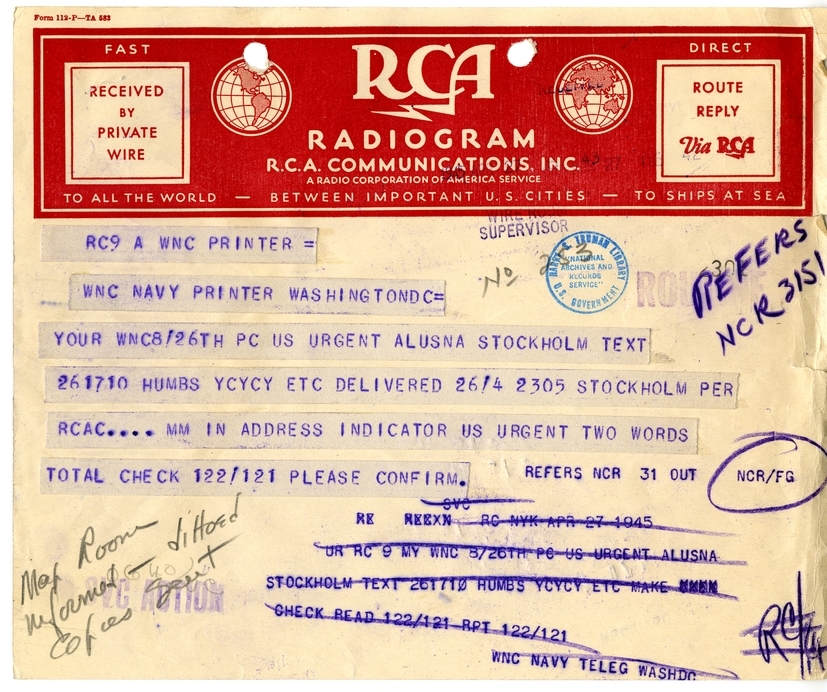 Form 112-P—TA 583
FAST
RECEIVED
BY
PRIVATE
WIRE
RCA
RADIOGRAM
R.C.A. COMMUNICATIONS, INC.
A RADIO CORPORATION OF AMERICA SERVICE
DIRECT
ROUTE
REPLY
Via RCA
TO ALL THE WORLD — BETWEEN IMPORTANT U.S. CITIES — TO SHIPS AT SEA
SUPERVISOR
RC9 A WNC PRINTER =
No 283
HARRY S. TRUMAN LIBRARY
"NATIONAL
ARCHIVES AND
RECORDS
SERVICE"
U.S. GOVERNMENT
REFERS
NCR 3151
WNC NAVY PRINTER WASHINGTONDC=
YOUR WNC8/26TH PC US URGENT ALUSNA STOCKHOLM TEXT
261710 HUMBS YCYCY ETC DELIVERED 26/4 2305 STOCKHOLM PER
RCAC.... MM IN ADDRESS INDICATOR US URGENT TWO WORDS
TOTAL CHECK 122/121 PLEASE CONFIRM.
REFERS NCR 31 OUT
NCR/FG
SVC
RE REEXN RC NYK APR 27 1945
UR RC 9 MY WNC 8/26TH PC US URGENT ALUSNA
STOCKHOLM TEXT 261710 HUMBS YCYCY ETC MAKE
CHECK READ 122/121 RPT 122/121
WNC NAVY TELEG WASHDC
Map Room
informed - dittoed
copies sent
SVC ACTION
RC/